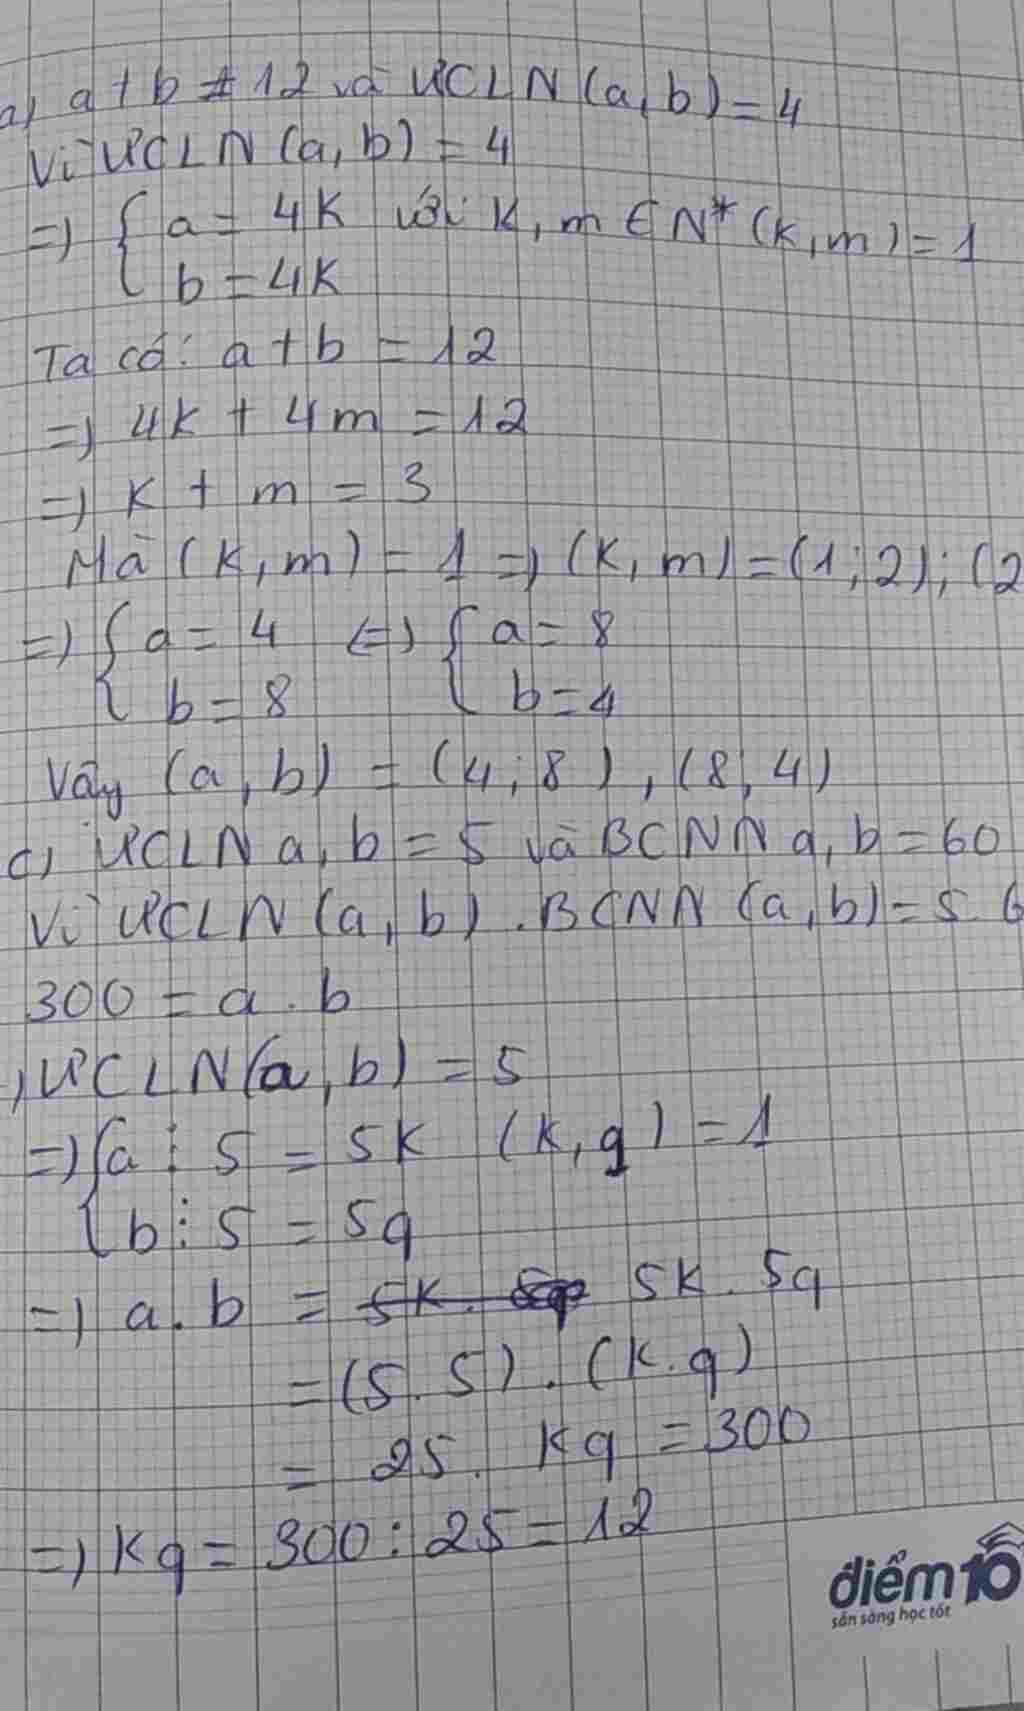 a) a + b ≠ 12 và ƯCLN (a, b) = 4
Vì ƯCLN (a, b) = 4
=) { a = 4K với K, m ∈ N* (K, m) = 1
b = 4K
Ta có: a + b = 12
=) 4K + 4m = 12
=) K + m = 3
Mà (K, m) = 1 =) (K, m) = (1; 2); (2
=) { a = 4 (=) { a = 8
b = 8 b = 4
Vậy (a, b) = (4; 8), (8; 4)
c) ƯCLN a, b = 5 và BCNN a, b = 60
Vì ƯCLN (a, b) . BCNN (a, b) = 5. 6
300 = a . b
, ƯCLN (a, b) = 5
=) { a ⋮ 5 = 5K (K, q) = 1
b ⋮ 5 = 5q
=) a . b = 5K . 5q
= (5 . 5) . (K . q)
= 25 . Kq = 300
=) Kq = 300 : 25 = 12
điểm10
sẵn sàng học tốt